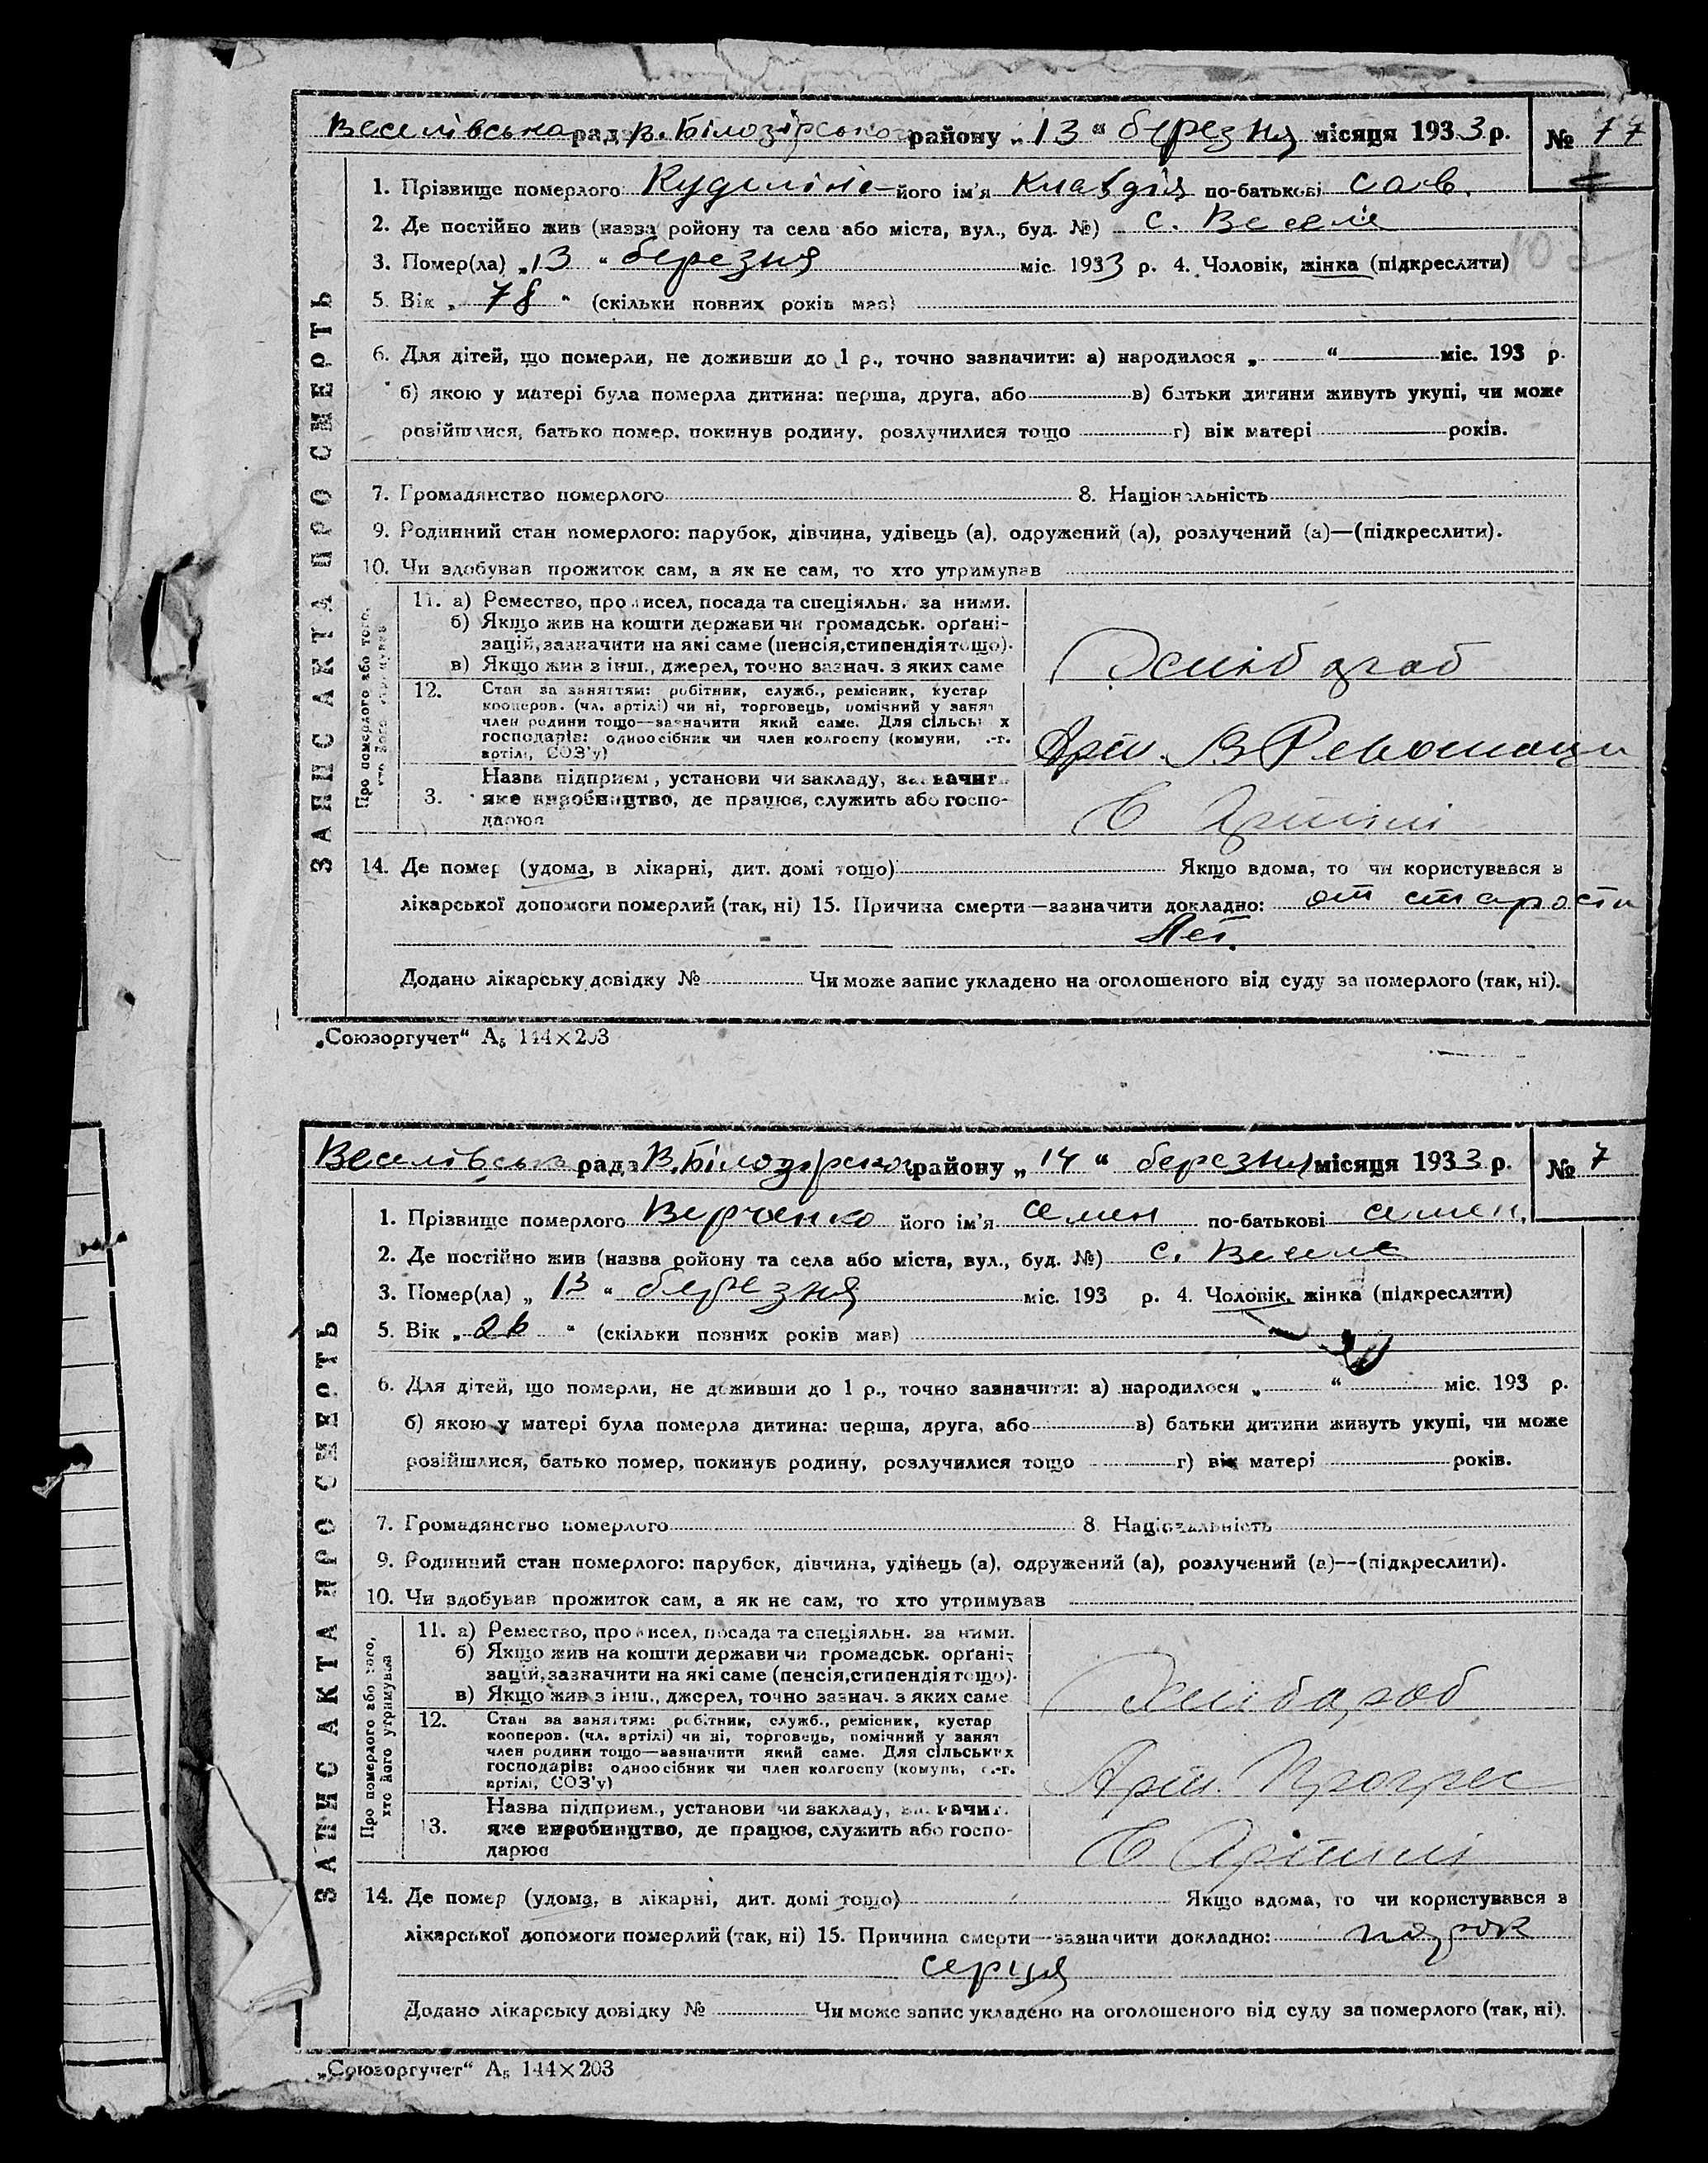 Веселівська рада В. Білозірського району „13“ березня місяця 1933 р. № 77
ЗАПИС АКТА ПРО СМЕРТЬ
1. Прізвище померлого його ім'я Клавдія по-батькові Сав.
2. Де постійно жив (назва ройону та села або міста, вул., буд. №) с. Веселе
3. Помер(ла) „13“ березня міс. 1933 р. 4. Чоловік, жінка (підкреслити)
5. Вік „78“ (скільки повних років мав)
6. Для дітей, що померли, не доживши до 1 р., точно зазначити: а) народилося „ “ міс. 193 р.
б) якою у матері була померла дитина: перша, друга, або в) батьки дитини живуть укупі, чи може
розійшлися, батько помер, покинув родину, розлучилися тощо г) вік матері років.
7. Громадянство померлого 8. Національність
9. Родинний стан померлого: парубок, дівчина, удівець (а), одружений (а), розлучений (а)—(підкреслити).
10. Чи здобував прожиток сам, а як не сам, то хто утримував
Про померлого або того, хто його утримував
11. а) Ремество, промисел, посада та спеціяльн. за ними.
б) Якщо жив на кошти держави чи громадськ. орґані-
зацій, зазначити на які саме (пенсія, стипендія тощо).
в) Якщо жив з інш., джерел, точно зазнач. з яких саме
Хлібороб
12. Стан за заняттям: робітник, служб., ремісник, кустар
кооперов. (чл. артілі) чи ні, торговець, помічний у занят
член родини тощо—зазначити який саме. Для сільських
господарів: одноосібник чи член колгоспу (комуни, с.-г.
артілі, СОЗ'у)
Арт.
Назва підприєм., установи чи закладу, зазначит.
13. яке виробництво, де працює, служить або госпо-
дарює
В Артілі
14. Де помер (удома, в лікарні, дит. домі тощо) Якщо вдома, то чи користувався з
лікарської допомоги померлий (так, ні) 15. Причина смерти—зазначити докладно: от старости
лет.
Додано лікарську довідку № Чи може запис укладено на оголошеного від суду за померлого (так, ні).
„Союзоргучет“ А₅ 144×203
Веселівська рада В. Білозірського району „14“ березня місяця 1933 р. № 7
ЗАПИС АКТА ПРО СМЕРТЬ
1. Прізвище померлого Верченко його ім'я Семен по-батькові Семен.
2. Де постійно жив (назва ройону та села або міста, вул., буд. №) с. Веселе
3. Помер(ла) „13“ березня міс. 193 р. 4. Чоловік, жінка (підкреслити)
5. Вік „26“ (скільки повних років мав)
6. Для дітей, що померли, не доживши до 1 р., точно зазначити: а) народилося „ “ міс. 193 р.
б) якою у матері була померла дитина: перша, друга, або в) батьки дитини живуть укупі, чи може
розійшлися, батько помер, покинув родину, розлучилися тощо г) вік матері років.
7. Громадянство померлого 8. Національність
9. Родинний стан померлого: парубок, дівчина, удівець (а), одружений (а), розлучений (а)—(підкреслити).
10. Чи здобував прожиток сам, а як не сам, то хто утримував
Про померлого або того, хто його утримував
11. а) Ремество, промисел, посада та спеціяльн. за ними.
б) Якщо жив на кошти держави чи громадськ. орґані-
зацій, зазначити на які саме (пенсія, стипендія тощо).
в) Якщо жив з інш., джерел, точно зазнач. з яких саме
Хлібороб
12. Стан за заняттям: робітник, служб., ремісник, кустар
кооперов. (чл. артілі) чи ні, торговець, помічний у занят
член родини тощо—зазначити який саме. Для сільських
господарів: одноосібник чи член колгоспу (комуни, с.-г.
артілі, СОЗ'у)
Арт. Прогрес
Назва підприєм., установи чи закладу, зазначит.
13. яке виробництво, де працює, служить або госпо-
дарює
В Артілі
14. Де помер (удома, в лікарні, дит. домі тощо) Якщо вдома, то чи користувався з
лікарської допомоги померлий (так, ні) 15. Причина смерти—зазначити докладно: порок
серця
Додано лікарську довідку № Чи може запис укладено на оголошеного від суду за померлого (так, ні).
„Союзоргучет“ А₅ 144×203